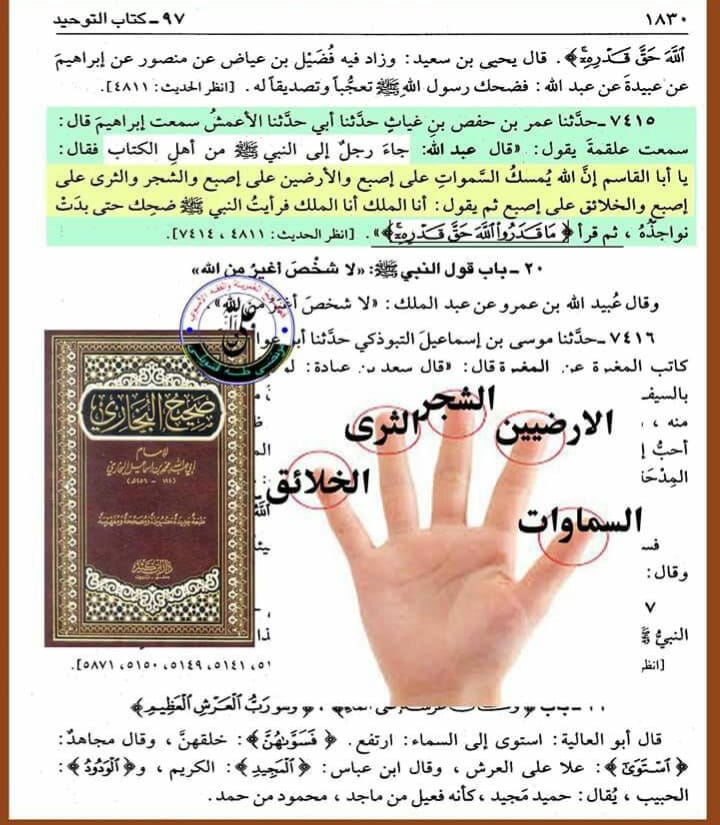 ١٨٣٠
٩٧ ـ كتاب التوحيد
ٱللَّهَ حَقَّ قَدْرِهِۦ﴾. قال يحيى بن سعيد: وزاد فيه فُضَيْل بن عياض عن منصور عن إبراهيمَ
عن عبيدةَ عن عبد الله: فضحك رسول اللهِ ﷺ تعجُّباً وتصديقاً له. [انظر الحديث: ٤٨١١].
٧٤١٥ ـ حدَّثنا عمر بن حفص بنِ غياثٍ حدَّثنا أبي حدَّثنا الأعمشُ سمعت إبراهيمَ قال:
سمعت علقمةَ يقول: «قال عبد الله: جاءَ رجلٌ إلى النبي ﷺ من أهلِ الكتاب فقال:
يا أبا القاسم إنَّ الله يُمسكُ السَّمواتِ على إصبع والأرضين على إصبع والشجر والثرى على
إصبع والخلائق على إصبع ثم يقول: أنا الملك أنا الملك فرأيتُ النبي ﷺ ضحِك حتى بدَتْ
نواجذُه، ثم قرأ ﴿مَا قَدَرُوا۟ ٱللَّهَ حَقَّ قَدْرِهِۦ﴾». [انظر الحديث: ٤٨١١، ٧٤١٤].
٢٠ ـ باب قول النبي ﷺ: «لا شخْصَ أغيرُ من الله»
وقال عُبيد الله بن عمرو عن عبد الملك: «لا شخصَ أغيَرُ من الله»
٧٤١٦ ـ حدَّثنا موسى بن إسماعيلَ التبوذكي حدَّثنا أبو عوا
كاتب المغيرة عن المغيرة قال: «قال سعد بن عبادة: لو
بالسيف
منه،
أحبُّ
المِدْحَا
صحيح البخاري
للإمام
أبي عبد الله محمد بن إسماعيل البخاري
دار ابن كثير
الشجر
الثرى
الارضيين
الخلائق
السماوات
وقال:
٧
النبي ﷺ
[انظر
٥١٤١، ٥١٤٩، ٥١٥٠، ٥٨٧١].
﴿وَهُوَ رَبُّ ٱلْعَرْشِ ٱلْعَظِيمِ﴾
قال أبو العالية: استوى إلى السماء: ارتفع. ﴿فَسَوَّىٰهُنَّ﴾: خلقهنَّ، وقال مجاهدٌ:
﴿ٱسْتَوَىٰ﴾: علا على العرش، وقال ابن عباس: ﴿ٱلْمَجِيدُ﴾: الكريم، و﴿ٱلْوَدُودُ﴾:
الحبيب، يُقال: حميد مَجيد، كأنه فعيل من ماجد، محمود من حمد.